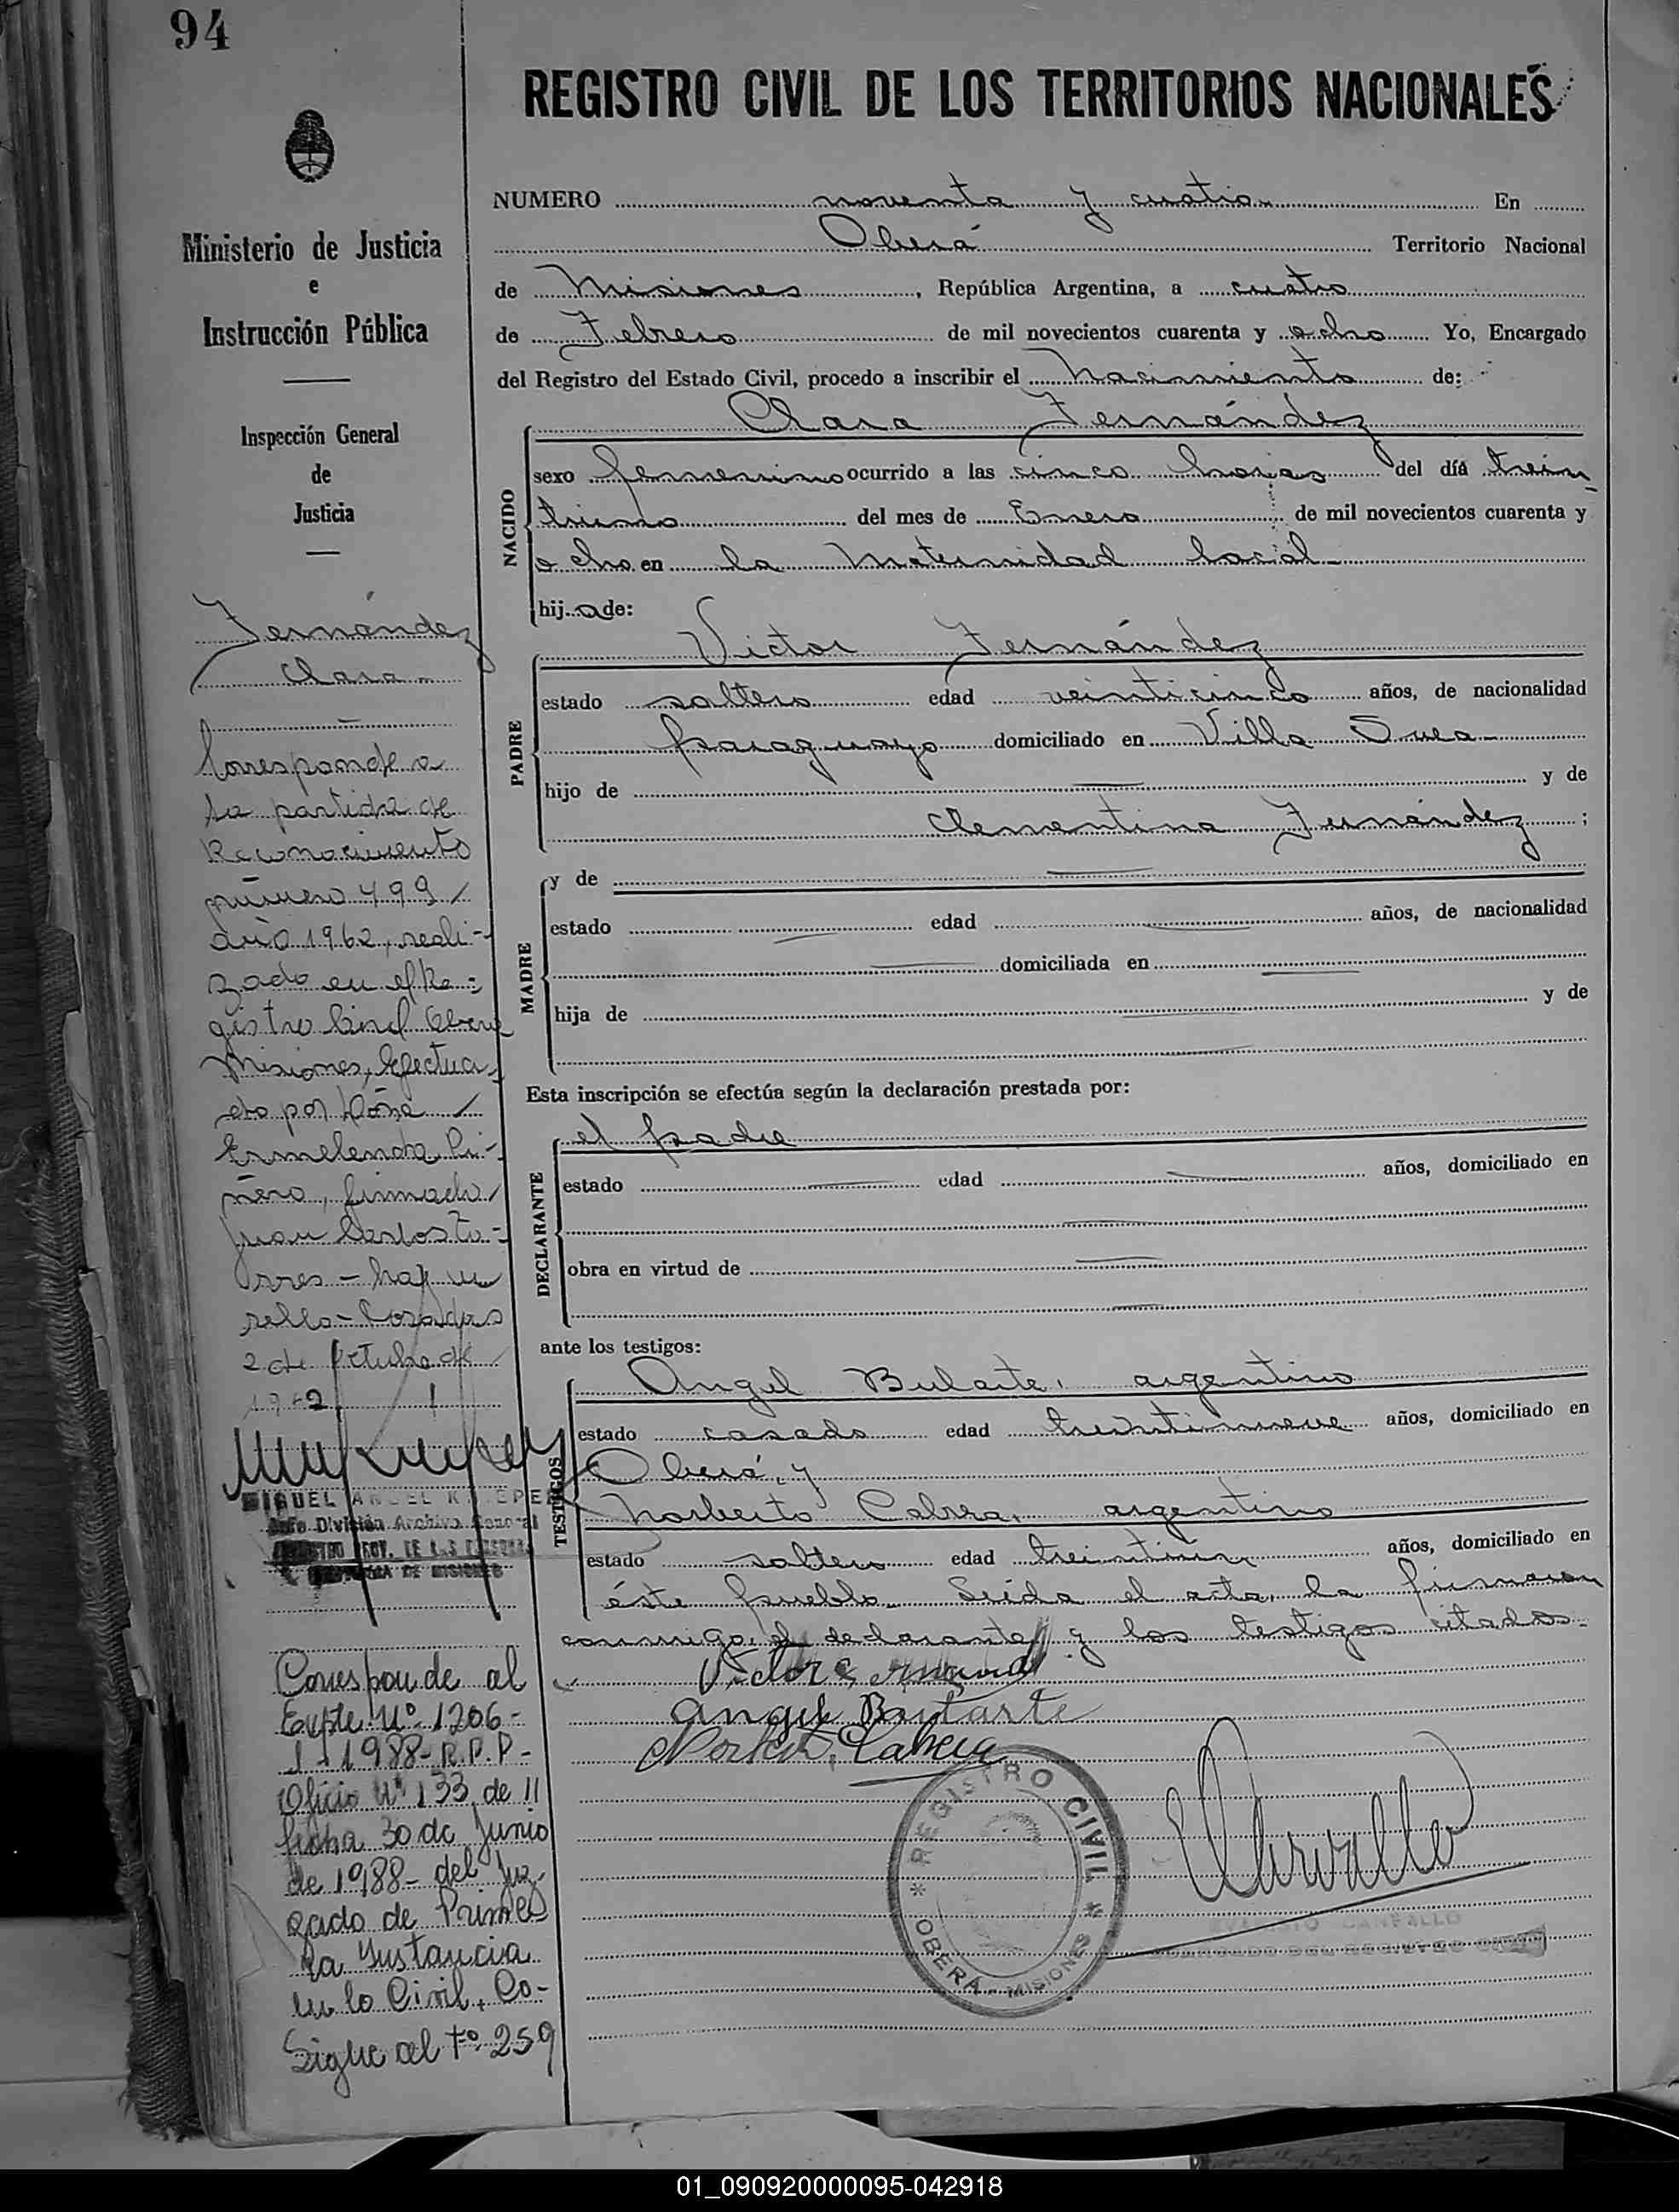 94
REGISTRO CIVIL DE LOS TERRITORIOS NACIONALES
Ministerio de Justicia
e
Instrucción Pública
Inspección General
de
Justicia
NUMERO noventa y cuatro En
Oberá Territorio Nacional
de Misiones, República Argentina, a cuatro
de Febrero de mil novecientos cuarenta y ocho Yo, Encargado
del Registro del Estado Civil, procedo a inscribir el Nacimiento de:
NACIDO
Clara Fernández
sexo femenino ocurrido a las cinco horas del día trein
tiuno del mes de Enero de mil novecientos cuarenta y
ocho en la Maternidad local
hija de:
PADRE
Victor Fernández
estado soltero edad veinticinco años, de nacionalidad
paraguayo domiciliado en Villa Svea
hijo de y de
Clementina Fernández;
MADRE
y de
estado edad años, de nacionalidad
domiciliada en
hija de y de
Esta inscripción se efectúa según la declaración prestada por:
DECLARANTE
el padre
estado edad años, domiciliado en
obra en virtud de
ante los testigos:
TESTIGOS
Angel argentino
estado casado edad treintinueve años, domiciliado en
Oberá, y
Norberto Cabrera, argentino
estado soltero edad treintiun años, domiciliado en
éste pueblo. Leída el acta, la firmaron
conmigo, el declarante y los testigos citados.
Victor
Angel
Cabrera
REGISTRO CIVIL
OBERA - MISIONES
Fernández
Clara
Corresponde a
la partida de
Reconocimiento
número 499
año 1962, reali-
zado en el Re-
gistro Civil Oberá
Misiones, efectua-
do por Doña
Ermelenda Pi-
ñero, firmado
Juan Carlos To-
rres - hay un
sello - Posadas
2 de Octubre de
MIGUEL ANGEL
Jefe División Archivo General
REGISTRO PROV. DE LAS PERSONAS
DE MISIONES
Corresponde al
Expte. Nº 1206-
1988- R.P.P-
Oficio Nº 133 de
fecha 30 de Junio
de 1988- del Juz-
gado de Prime
ra Instancia
en lo Civil, Co-
Sigue al Fº 259
01_090920000095-042918